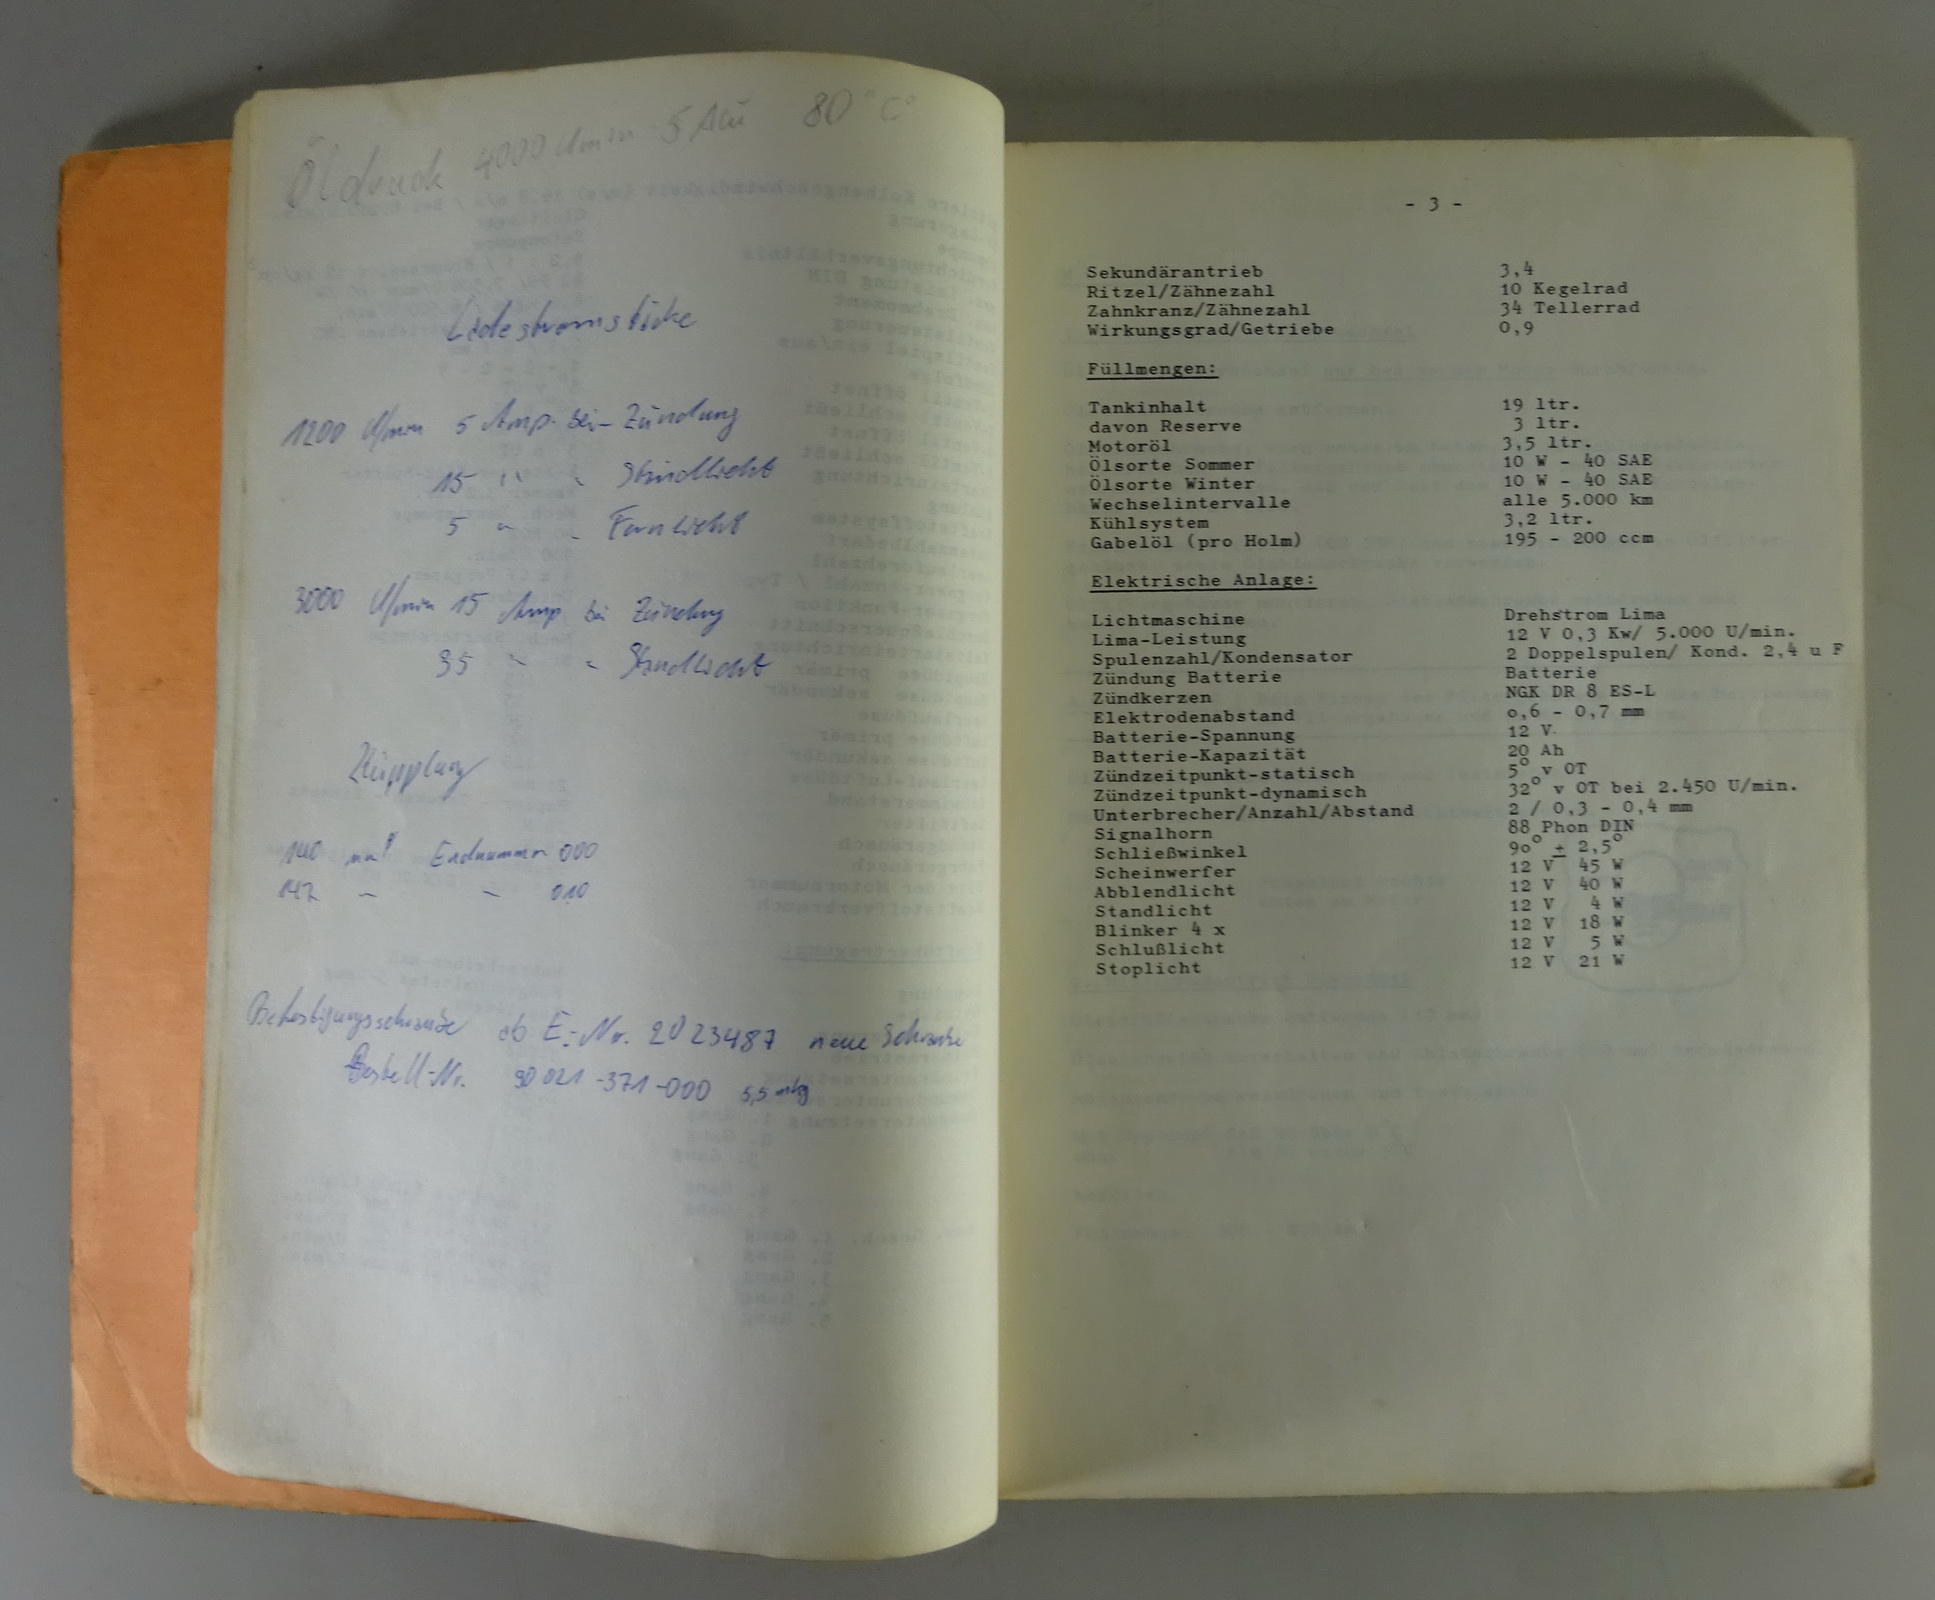 Öldruck 4000 U/min 5 Atü 80 °C°
Ladestromstärke
1200 U/min 5 Amp. bei Zündung
15 " " Standlicht
5 " " Fernlicht
3000 U/min 15 Amp bei Zündung
35 " " Standlicht
Kupplung
140 mm Endnummer 000
142 " " 010
Befestigungsschraube ab E.-Nr. 2023487 neue Schraube
Bestell-Nr. 90 021 -371-000 5,5 mkg
- 3 -
Sekundärantrieb 3,4
Ritzel/Zähnezahl 10 Kegelrad
Zahnkranz/Zähnezahl 34 Tellerrad
Wirkungsgrad/Getriebe 0,9
Füllmengen:
Tankinhalt 19 ltr.
davon Reserve 3 ltr.
Motoröl 3,5 ltr.
Ölsorte Sommer 10 W - 40 SAE
Ölsorte Winter 10 W - 40 SAE
Wechselintervalle alle 5.000 km
Kühlsystem 3,2 ltr.
Gabelöl (pro Holm) 195 - 200 ccm
Elektrische Anlage:
Lichtmaschine Drehstrom Lima
Lima-Leistung 12 V 0,3 Kw/ 5.000 U/min.
Spulenzahl/Kondensator 2 Doppelspulen/ Kond. 2,4 u F
Zündung Batterie Batterie
Zündkerzen NGK DR 8 ES-L
Elektrodenabstand o,6 - 0,7 mm
Batterie-Spannung 12 V
Batterie-Kapazität 20 Ah
Zündzeitpunkt-statisch 5° v OT
Zündzeitpunkt-dynamisch 32° v OT bei 2.450 U/min.
Unterbrecher/Anzahl/Abstand 2 / 0,3 - 0,4 mm
Signalhorn 88 Phon DIN
Schließwinkel 9o° ± 2,5°
Scheinwerfer 12 V 45 W
Abblendlicht 12 V 40 W
Standlicht 12 V 4 W
Blinker 4 x 12 V 18 W
Schlußlicht 12 V 5 W
Stoplicht 12 V 21 W